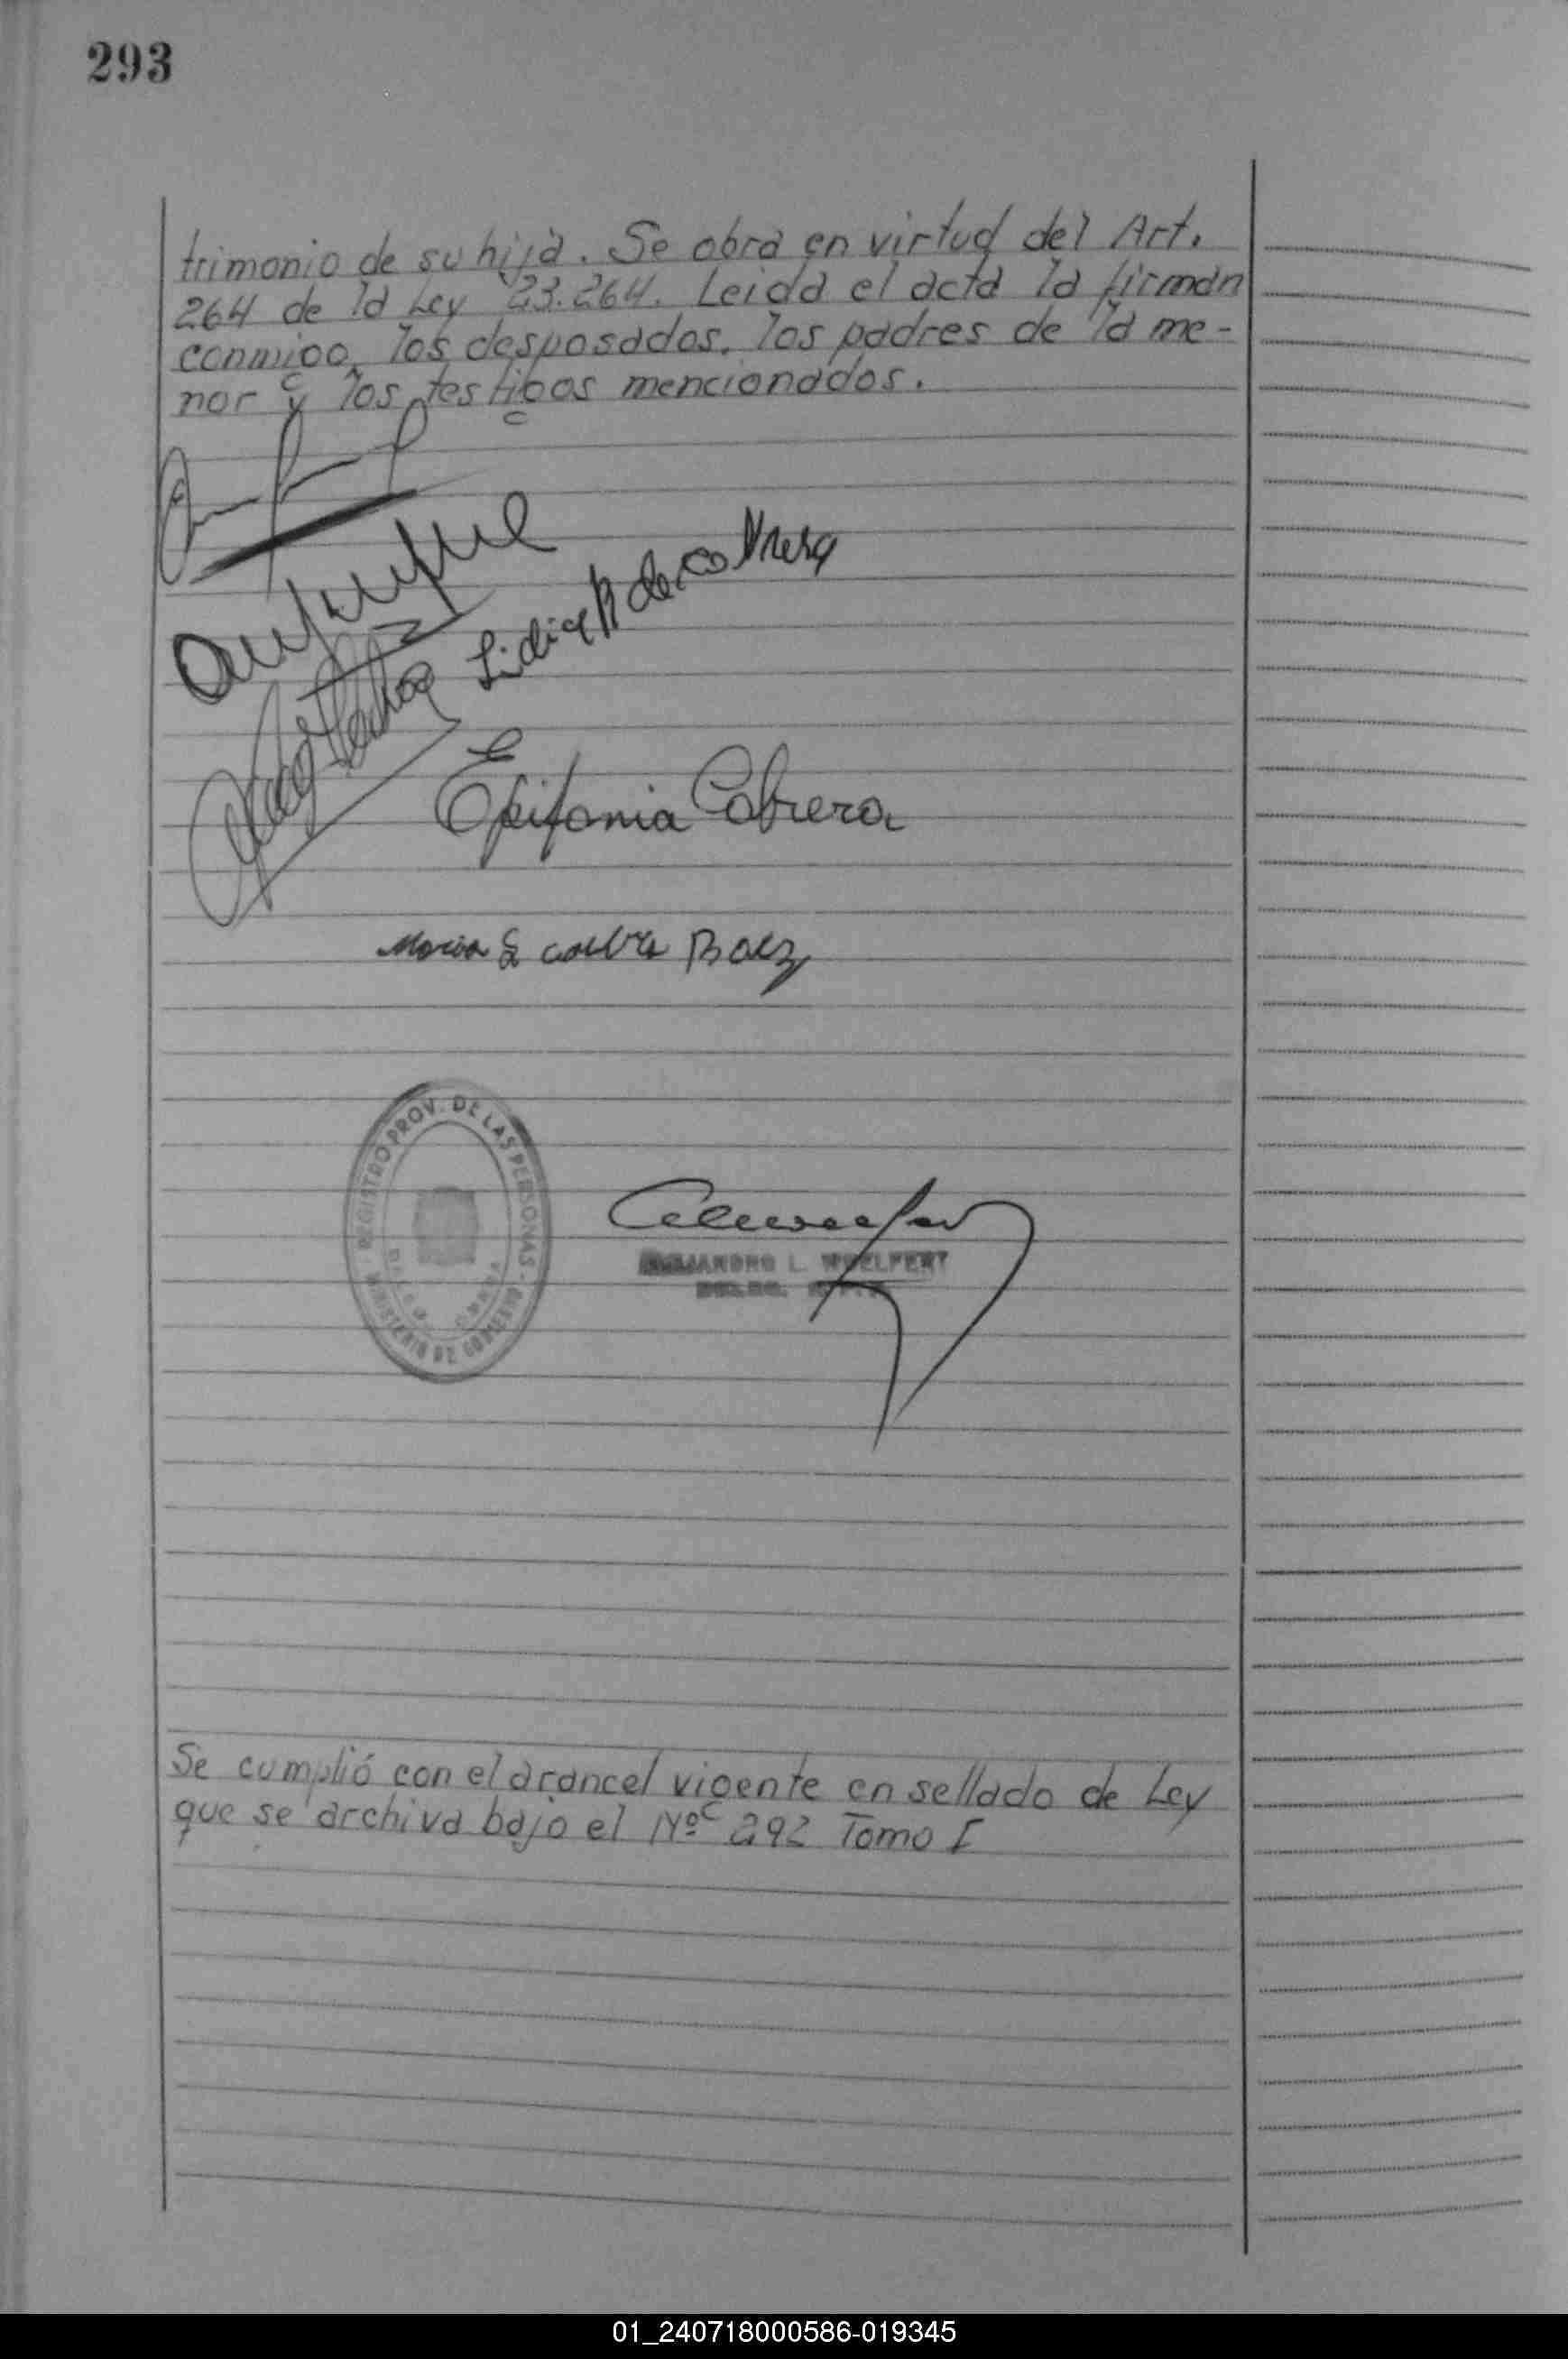 293
trimonio de su hija. Se obra en virtud del Art.
264 de la Ley 23.264. Leida el acta la firman
conmigo, los desposados, los padres de la me-
nor y los testigos mencionados.
Lidia R de
Epifania Cabrera
Maria Baez
REGISTRO PROV. DE LAS PERSONAS - MINISTERIO DE GOBIERNO
ALEJANDRO L. WOELFERT
Se cumplió con el arancel vigente en sellado de Ley
que se archiva bajo el Nº 292 Tomo I
01_240718000586-019345